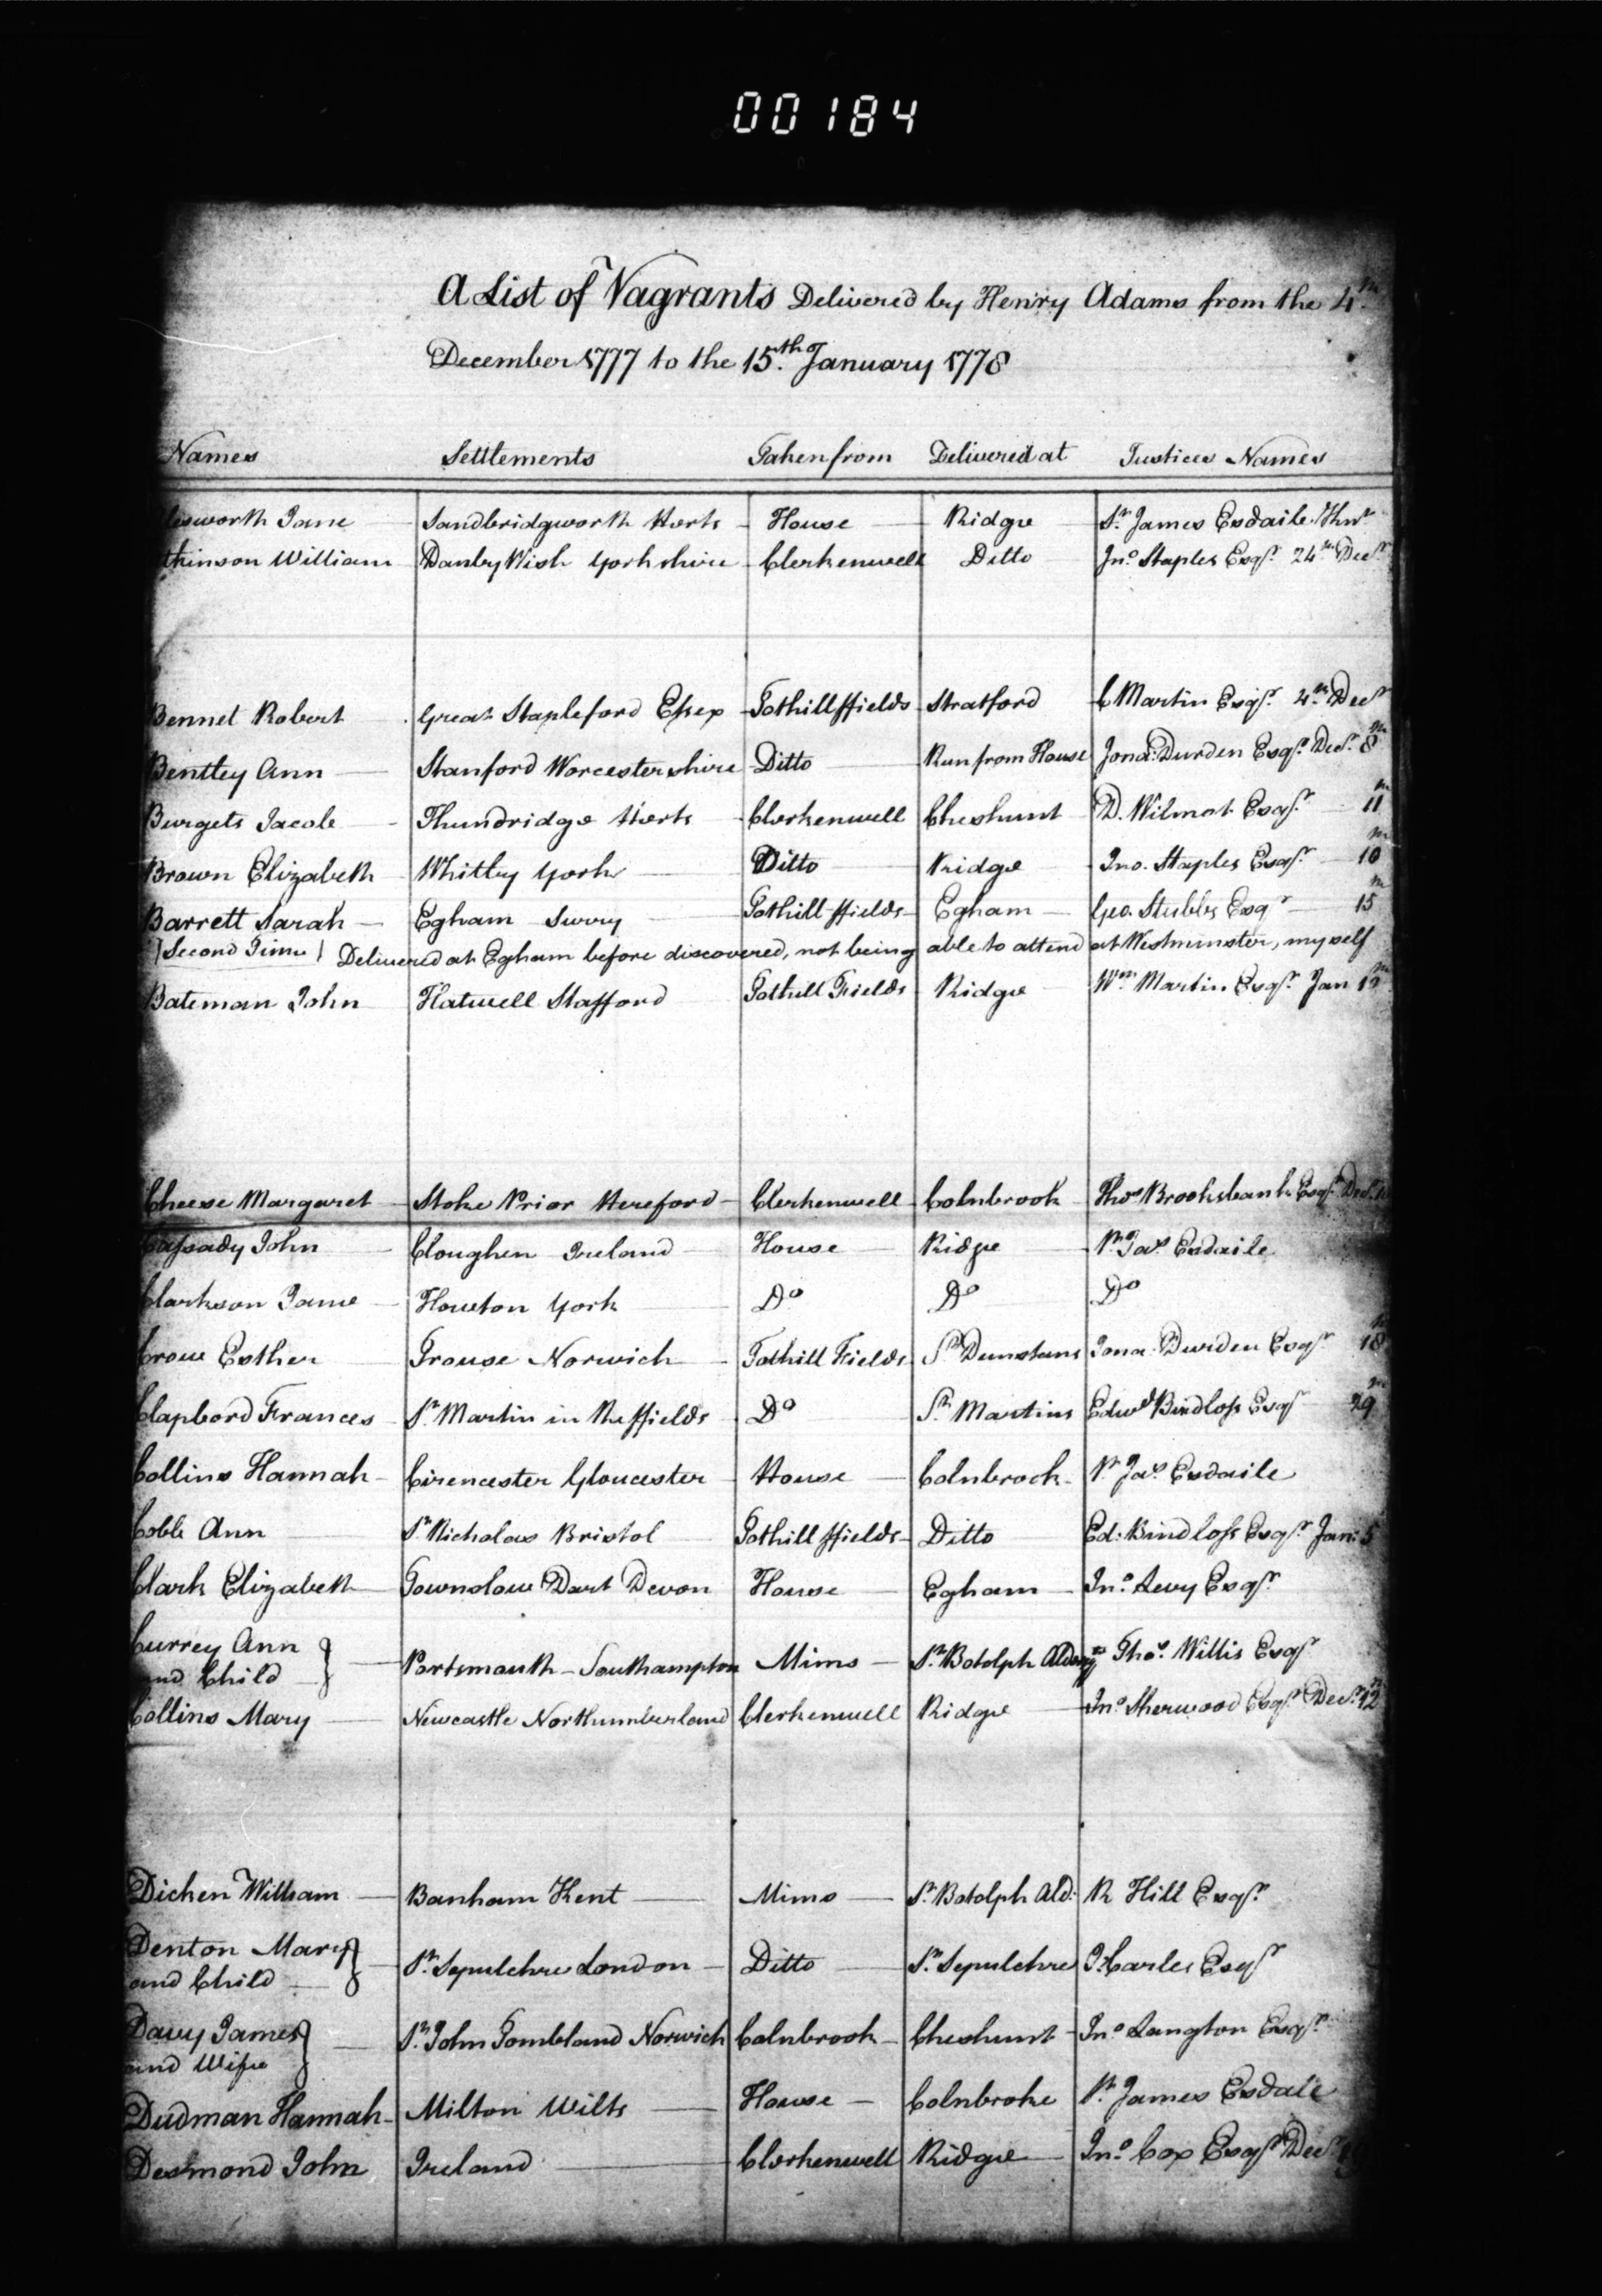 00184
A List of Vagrants Delivered by Henry Adams from the 4th
December 1777 to the 15th January 1778
Names Settlements Taken from Delivered at Justices Names
Jane Sandbridgworth Herts House Ridge Sr. James Esdaile Knt
tkinson William Danby Wish Yorkshire Clerkenwell Ditto Jno. Staples Esqr. 24th Decr
Bennet Robert Great Stapleford Essex Tothill ffields Stratford C Martin Esqr. 4th Decr
Bentley Ann Stanford Worcestershire Ditto Run from House Jona: Durden Esqr. Decr. 8th
Burgets Jacob Thundridge Herts Clerkenwell Cheshunt D. Wilmot Esqr. 11th
Brown Elizabeth Whitby York Ditto Ridge Jno. Staples Esqr. 10th
Barrett Sarah Egham Surry Tothill ffields Egham Geo. Stubbs Esqr 15th
(Second Time) Delivered at Egham before discovered, not being able to attend at Westminster, myself
Bateman John Hatwell Stafford Tothill Fields Ridge Wm. Martin Esqr. Jan 12th
Cheese Margaret Stoke Prior Hereford Clerkenwell Colnbrook Thos Brooksbank Esqr. Decr.
Cassady John Cloughen Ireland House Ridge Sr. Jas. Esdaile
Clarkson Jane Howton York Do Do Do
Crow Esther Trouse Norwich Tothill Fields St. Dunstans Jona. Durden Esqr 18th
Clapbord Frances St. Martin in the ffields Do St. Martins Edwd Bindloss Esqr 29th
Collins Hannah Cirencester Gloucester House Colnbrook Sr. Jas. Esdaile
Coble Ann St. Nicholas Bristol Tothill ffields Ditto Ed: Bindloss Esqr. Jan: 5
Clark Elizabeth Townslow Dart Devon House Egham Jno. Levy Esqr.
Currey Ann
and Child } Portsmouth Southampton Mims St. Botolph Thos. Willis Esqr
Collins Mary Newcastle Northumberland Clerkenwell Ridge Jno Sherwood Esqr. Decr. 12th
Dicken William Banham Kent Mims St. Botolph Ald: R Hill Esqr.
Denton Mary
and Child } St. Sepulchre London Ditto St. Sepulchre T. Carles Esqr
Davy James
and Wife } St. John Tombland Norwich Colnbrook Cheshunt Jno Langton Esqr.
Dudman Hannah Milton Wilts House Colnbroke Sr. James Esdale
Desmond John Ireland Clerkenwell Ridge Jno. Cox Esqr Decr.